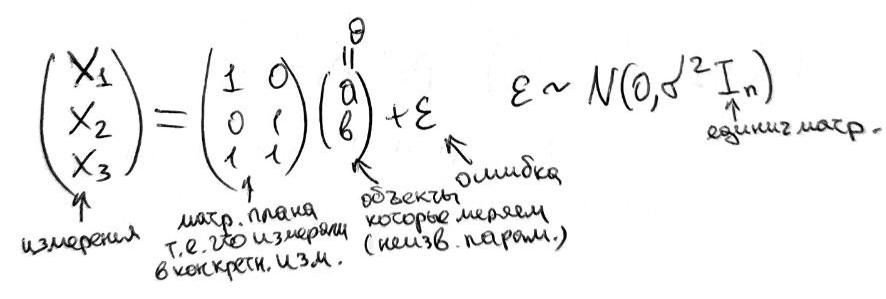 θ
||
(X₁ X₂ X₃) = (1 0 0 1 1 1) (a в) + ε ε ~ N(0, σ²Iₙ)
измерения
матр. плана
т.е. что измеряли
в конкретн. изм.
объекты
которые меряем
(неизв. парам.)
ошибка
единич матр.